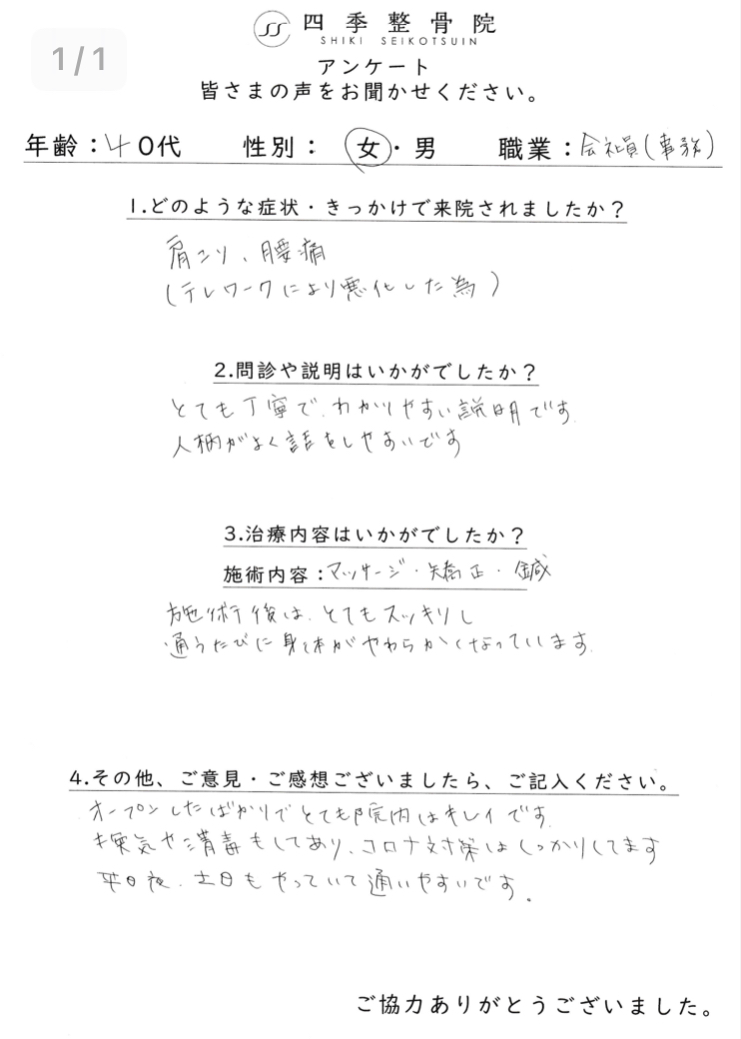 四季整骨院
SHIKI SEIKOTSUIN
1/1
アンケート
皆さまの声をお聞かせください。
年齢：40代 性別： 女・男 職業：会社員(事務)
1.どのような症状・きっかけで来院されましたか？
肩コリ、腰痛
(テレワークにより悪化した為)
2.問診や説明はいかがでしたか？
とても丁寧で、わかりやすい説明です。
人柄がよく話をしやすいです
3.治療内容はいかがでしたか？
施術内容：マッサージ・矯正・鍼
施術後は、とてもスッキリし
通うたびに身体がやわらかくなっています。
4.その他、ご意見・ご感想ございましたら、ご記入ください。
オープンしたばかりでとても院内はキレイです。
換気や消毒もしてあり、コロナ対策はしっかりしてます
平日夜、土日もやっていて通いやすいです。
ご協力ありがとうございました。